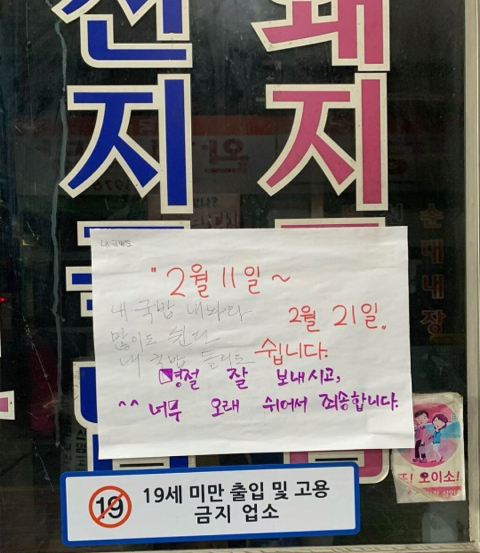 선 돼
지 지
순대내장
"2월 11일 ~
내 국밥 내놔라
2월 21일.
많이도 쉰다
내 국밥 돌리도
쉽니다.
명절 잘 보내시고,
^^ 너무 오래 쉬어서 죄송합니다.
또! 오이소!
19
19세 미만 출입 및 고용
금지 업소